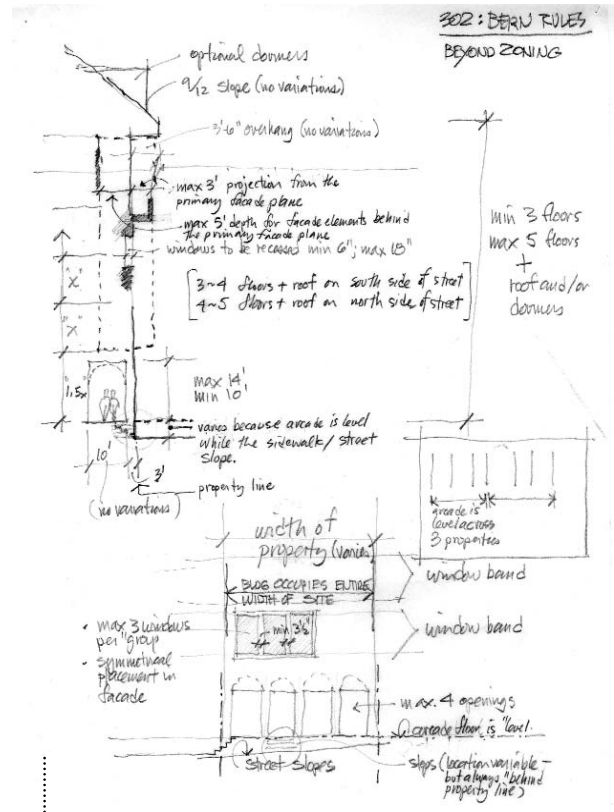 302: BERN RULES
BEYOND ZONING
optional dormers
9/12 slope (no variations)
3'6" overhang (no variations)
max 3' projection from the
primary facade plane
max 5' depth for facade elements behind
the primary facade plane
windows to be recessed min 6"; max 18"
3~4 floors + roof on south side of street
4~5 floors + roof on north side of street
min 3 floors
max 5 floors
+
roof and/or
dormers
"x"
"x"
"1.5x"
max 14'
min 10'
varies because arcade is level
while the sidewalk/street
slope.
10'
3'
(no variations)
property line
arcade is
level across
3 properties
width of
property (varies)
BLDG OCCUPIES ENTIRE
WIDTH OF SITE
window band
• max 3 windows
per "group"
• symmetrical
placement in
facade
min 3½"
window band
max. 4 openings
arcade floor is "level".
street slopes
steps (location variable -
but always "behind
property line)